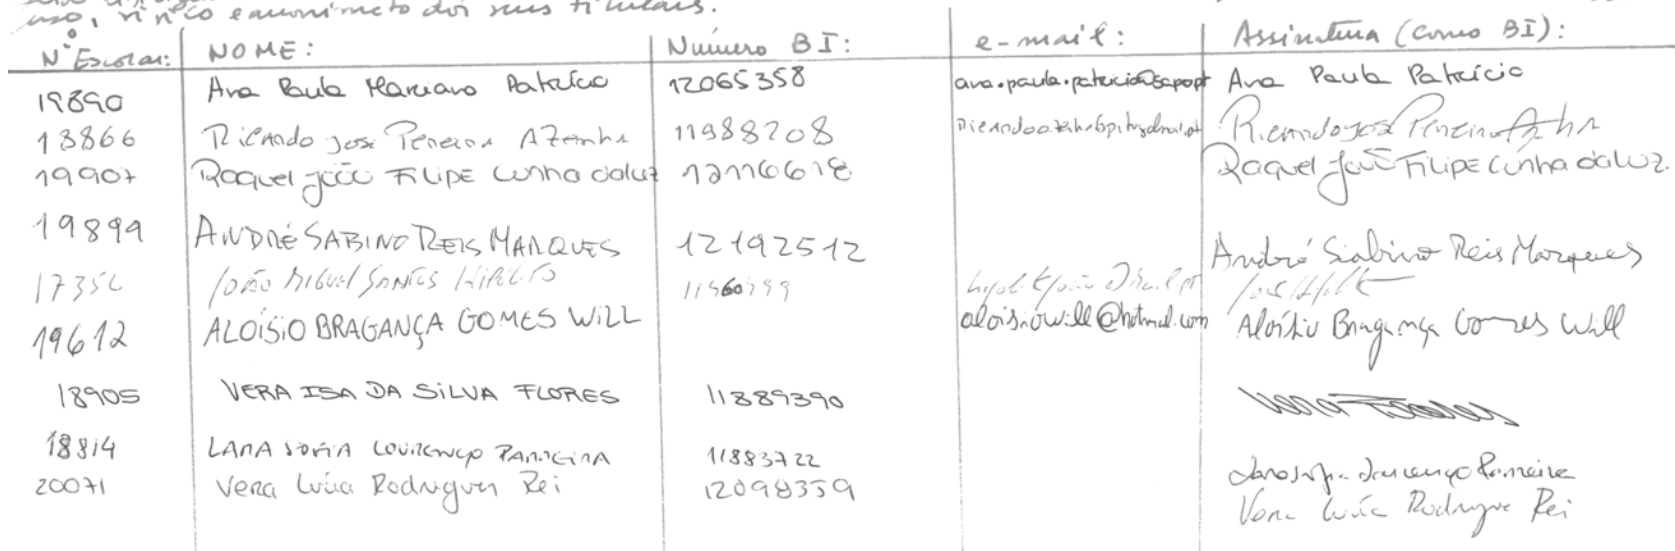 uso, risco e anonimato dos seus titulares.
Nº Escolar: NOME: Número BI: e-mail: Assinatura (como BI):
19890 Ana Paula Mariano Patrício 12065358 ana.paula.patricio@sapo.pt Ana Paula Patrício
13866 Ricardo José Pereira Azenha 11988208 Ricardo José Pereira Azenha
19907 Raquel João Filipe Cunha da Luz 12116618 Raquel João Filipe Cunha da Luz
19899 ANDRÉ SABINO REIS MARQUES 12192512 André Sabino Reis Marques
João Miguel Santos Hipólito
19612 ALOÍSIO BRAGANÇA GOMES WILL aloisiowill@hotmail.com Aloísio Bragança Gomes Will
18905 VERA ISA DA SILVA FLORES 11889390 Vera Flores
18814 LARA SOFIA LOURENÇO PARREIRA 11883722 Lara Sofia Lourenço Parreira
20071 Vera Lúcia Rodrigues Rei 12098359 Vera Lúcia Rodrigues Rei